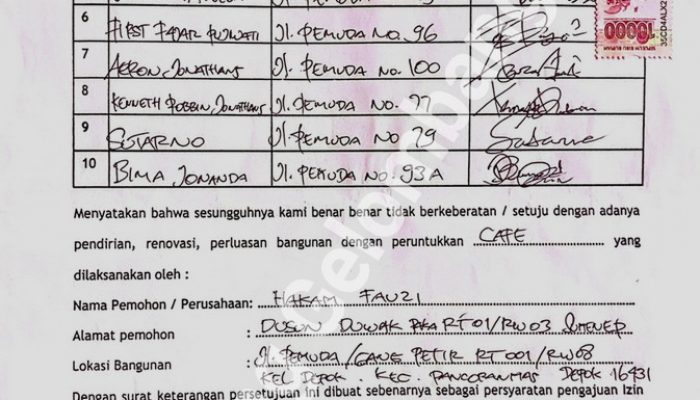 6 FIRST FADAR PURWATI Jl. PEMUDA NO. 96
7 AERON JONATHANS Jl. PEMUDA No. 100
8 KENNETH ROBBIN JONATHANS Jl. PEMUDA NO. 97
9 SUTARNO Jl. PEMUDA NO 29 Sutarno
10 BIMA JONANDA Jl. PEMUDA NO. 93A
10000
35CD4ALX2
Gelombang
Menyatakan bahwa sesungguhnya kami benar benar tidak berkeberatan / setuju dengan adanya
pendirian, renovasi, perluasan bangunan dengan peruntukkan CAFE yang
dilaksanakan oleh :
Nama Pemohon / Perusahaan: HAKAM FAUZI
Alamat pemohon : DUSUN DUWAK RT01/RW03 SUMENEP
Lokasi Bangunan : Jl. PEMUDA/GANG PETIR RT 001/RW08
KEL DEPOK. KEC. PANCORANMAS DEPOK 16431
Dengan surat keterangan persetujuan ini dibuat sebenarnya sebagai persyaratan pengajuan Izin